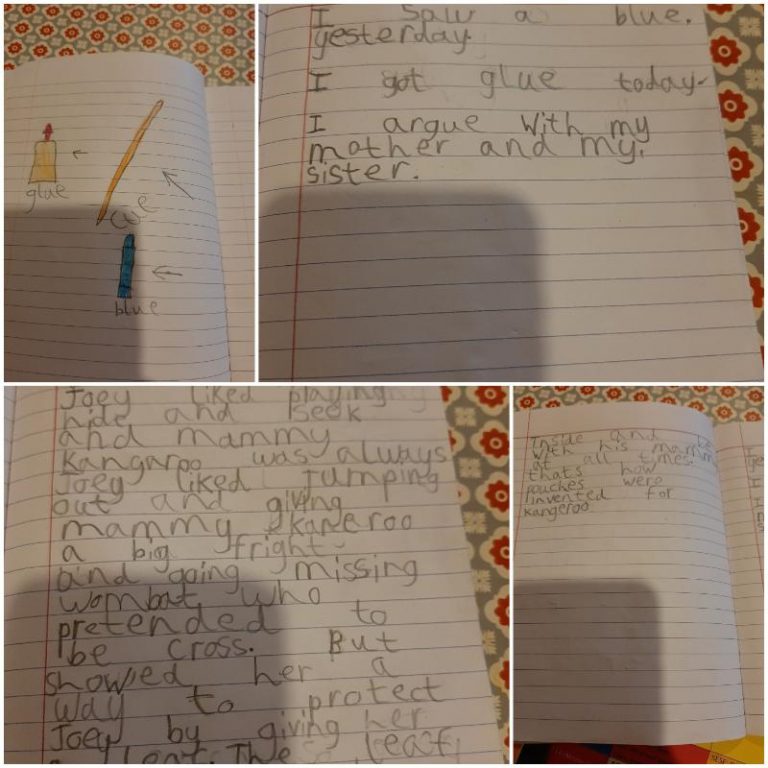 glue
cue
blue
I saw a blue.
yesterday.
I got glue today.
I argue with my
mother and my.
sister.
Joey liked playing
hide and seek
and mammy
kangaroo was always
Joey liked jumping
out and giving
mammy kaneroo
a big fright.
and going missing
wombat who
pretended to
be cross. But
showed her a
way to protect
Joey by giving her
inside and be
with his mammy
at all times.
thats how
pouches were
invented for
kangeroo.